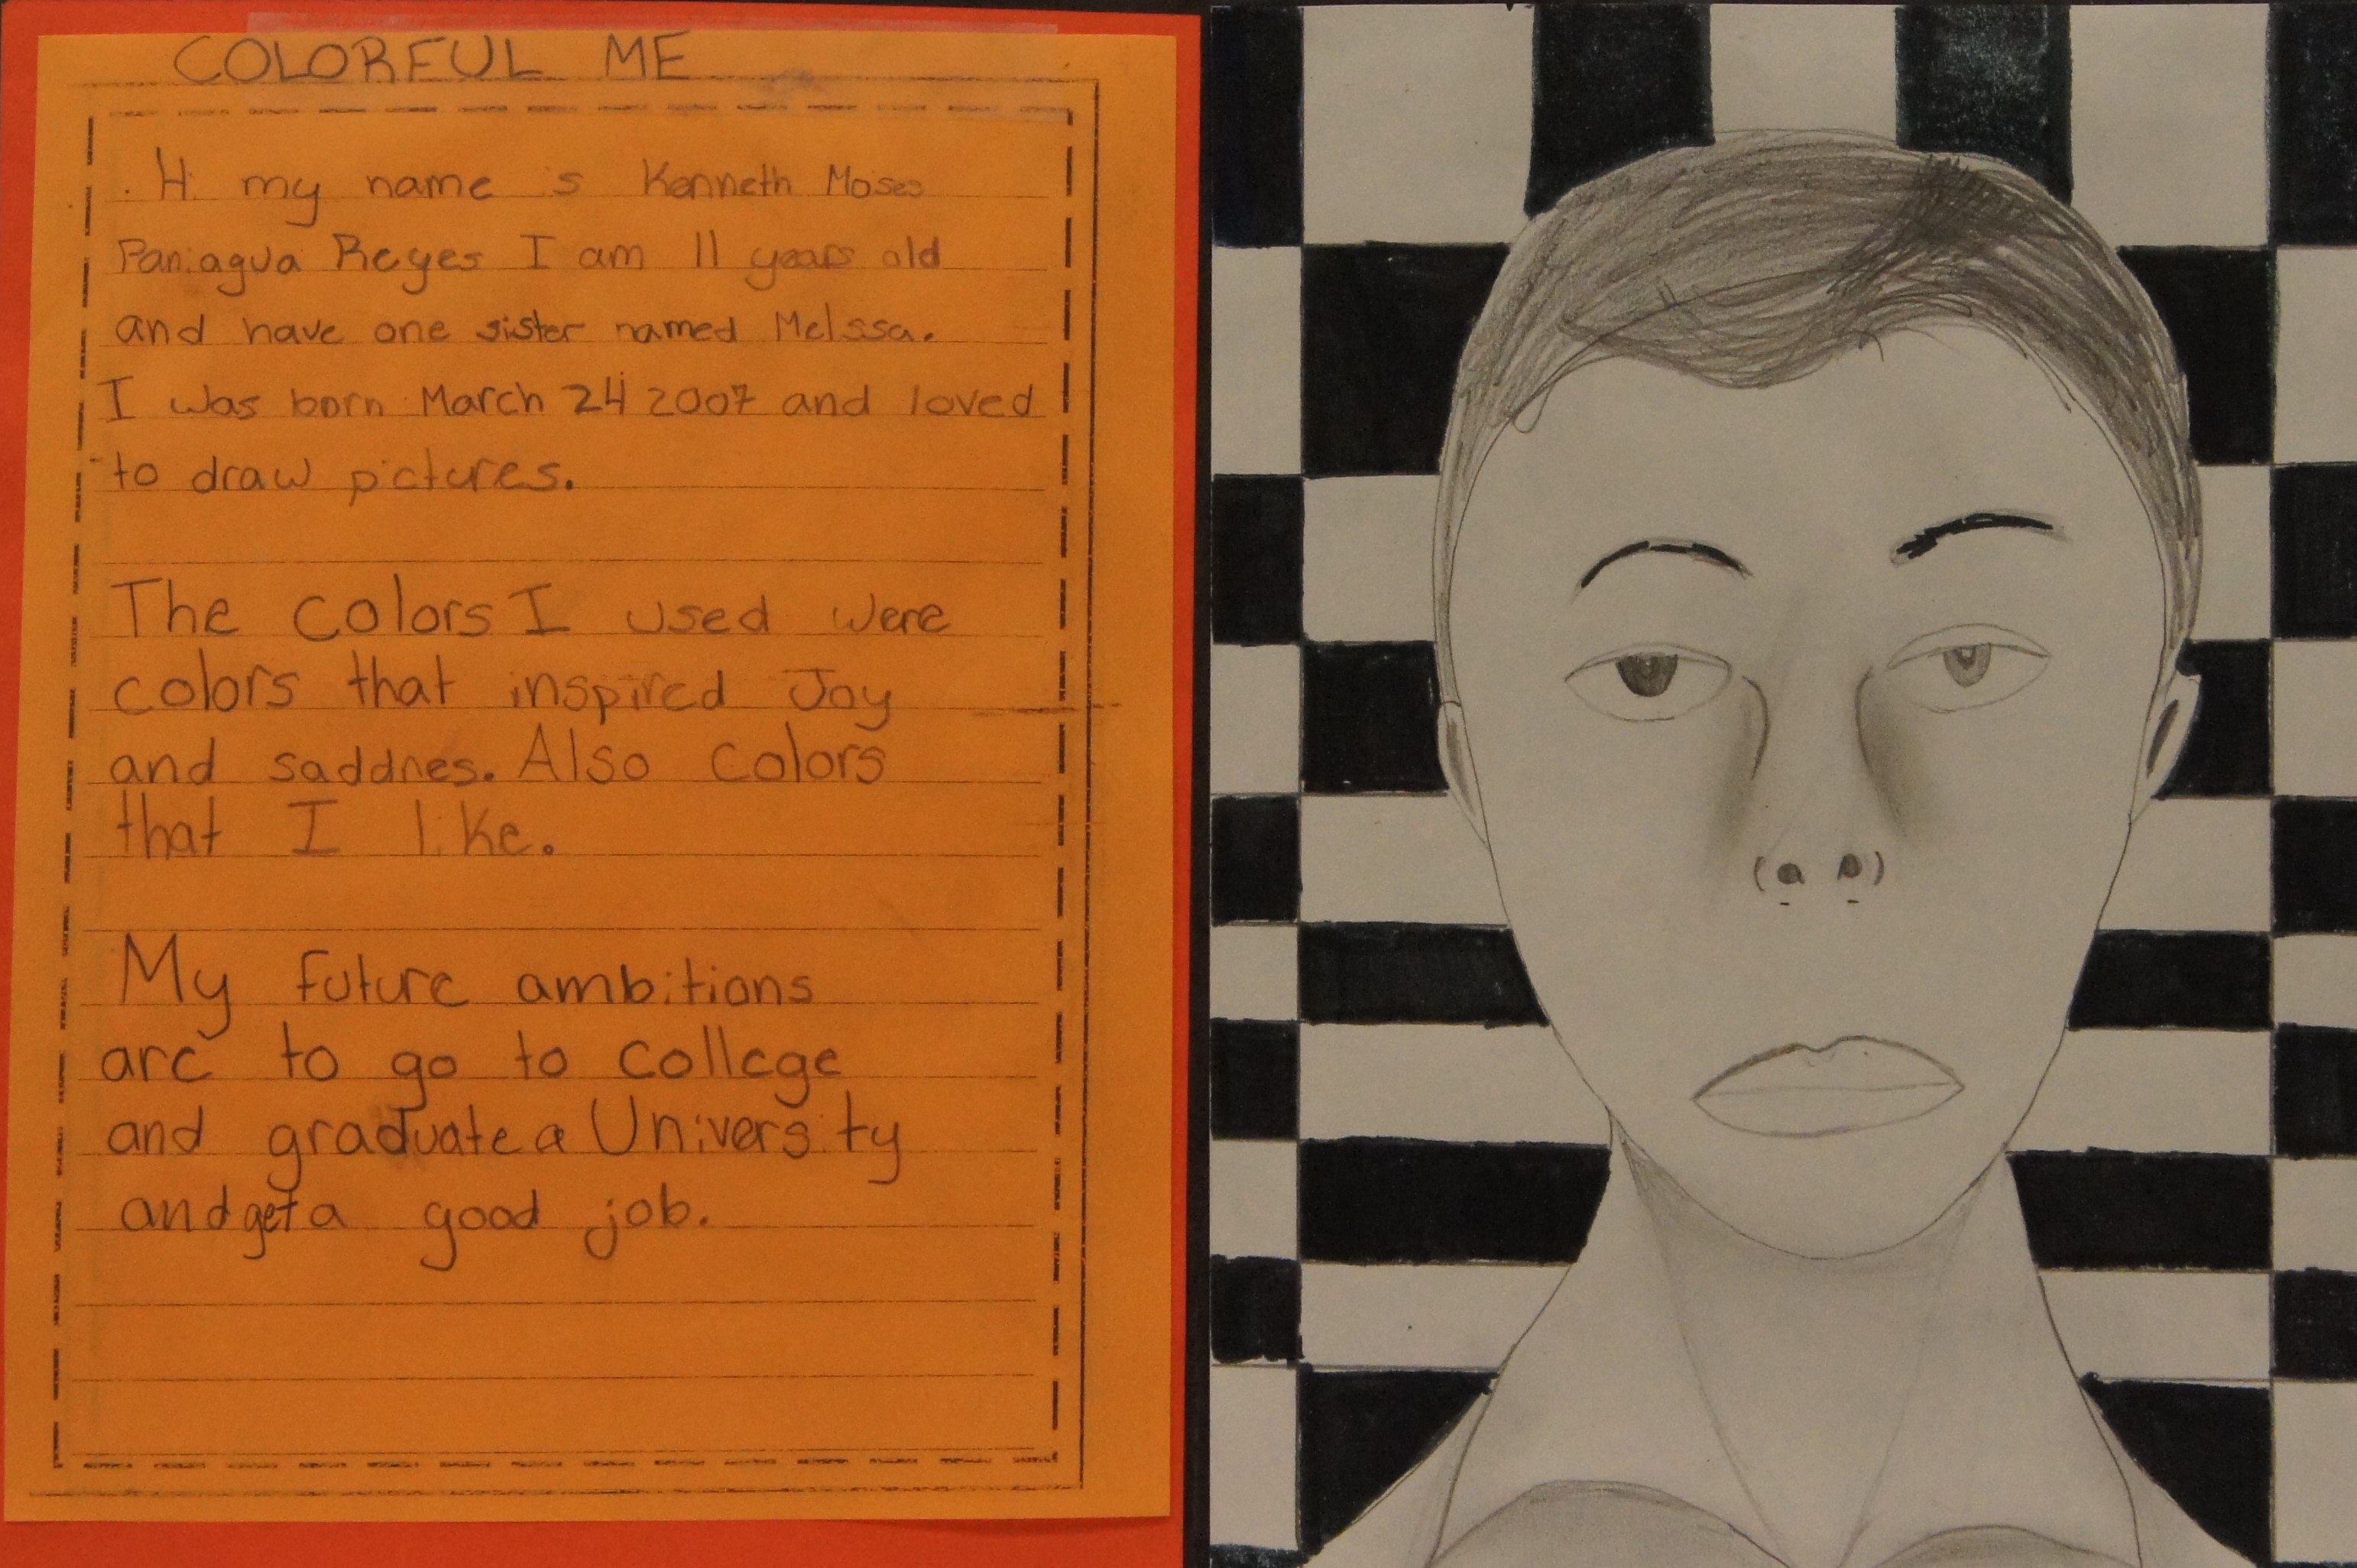 COLORFUL ME
Hi my name is Kenneth Moses
Paniagua Reyes I am 11 years old
and have one sister named Melssa.
I was born March 24 2007 and loved
to draw pictures.
The colors I used were
colors that inspired Joy
and saddnes. Also colors
that I like.
My future ambitions
are to go to college
and graduate a University
and get a good job.